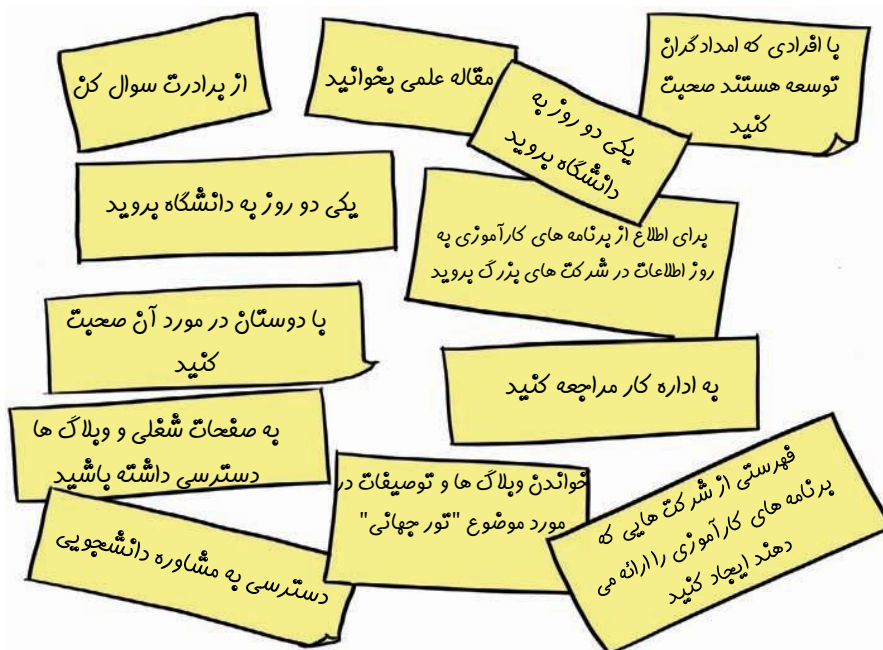 از برادرت سوال کن
مقاله علمی بخوانید
با افرادی که امدادگران
توسعه هستند صحبت
کنید
یکی دو روز به
دانشگاه بروید
یکی دو روز به دانشگاه بروید
برای اطلاع از برنامه های کارآموزی به
روز اطلاعات در شرکت های بزرگ بروید
با دوستان در مورد آن صحبت
کنید
به اداره کار مراجعه کنید
به صفحات شغلی و وبلاگ ها
دسترسی داشته باشید
خواندن وبلاگ ها و توصیفات در
مورد موضوع "تور جهانی"
فهرستی از شرکت هایی که
برنامه های کارآموزی را ارائه می
دهند ایجاد کنید
دسترسی به مشاوره دانشجویی